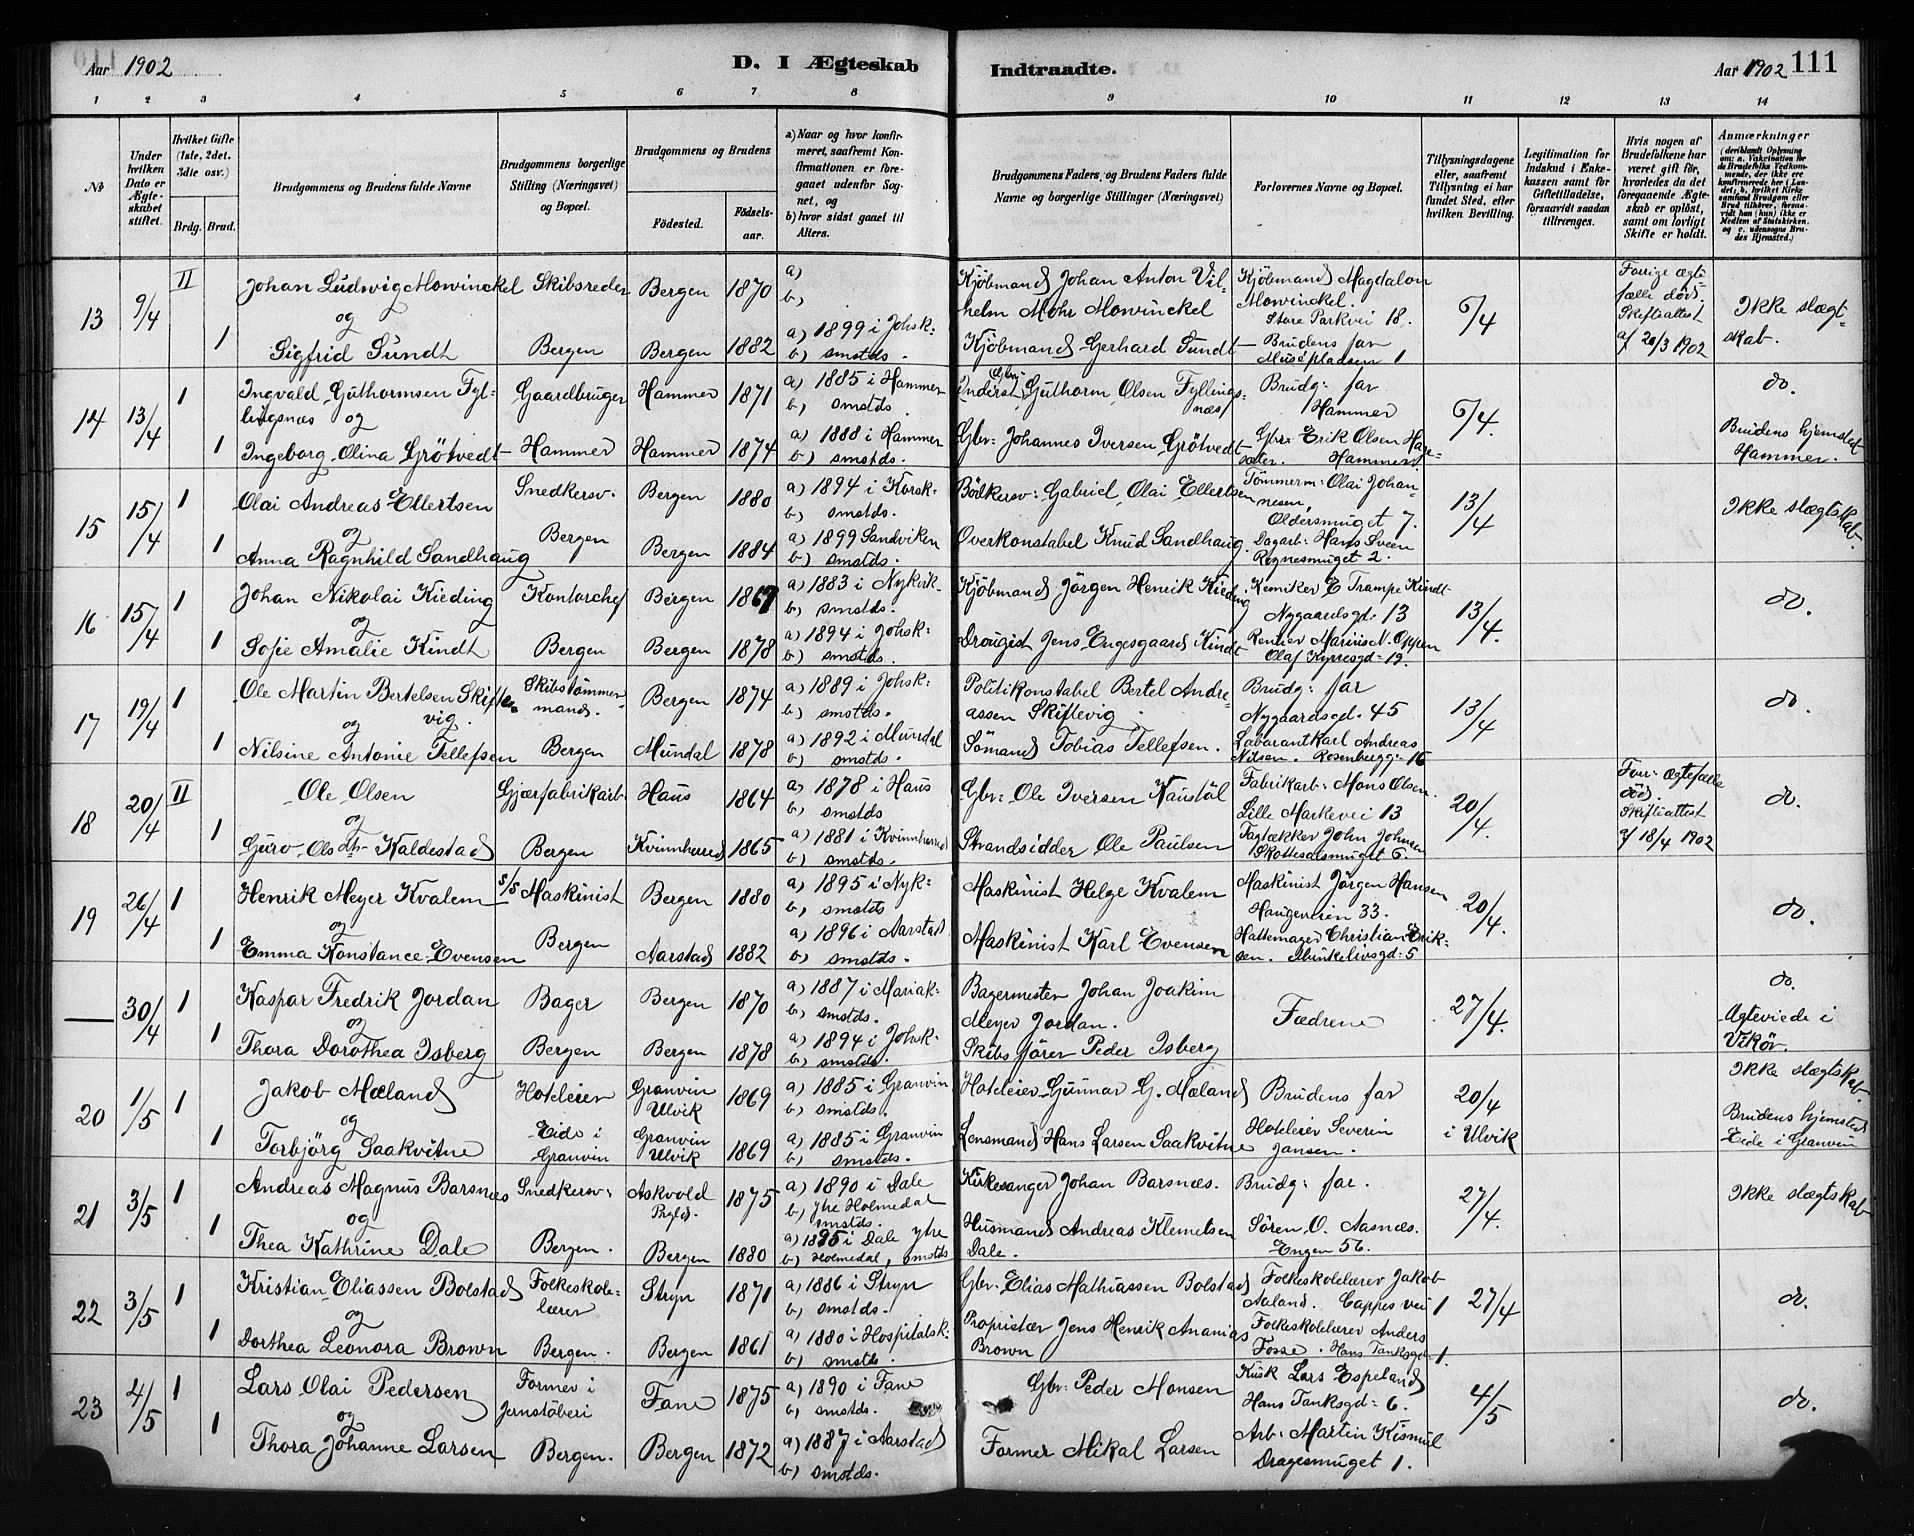 Aar 1902
D. I Ægteskab
Indtraadte.
Aar 1902 111
1 2 3 4 5 6 7 8 9 10 11 12 13 14
No
Under hvilken Dato er Ægteskabet stiftet.
Hvilket Gifte (1ste, 2det, 3die osv.)
Brdg. Brud.
Brudgommens og Brudens fulde Navne
Brudgommens borgerlige Stilling (Næringsvei) og Bopæl.
Brudgommens og Brudens
Fødested.
Fødselsaar.
a) Naar og hvor konfirmeret, saafremt Konfirmationen er foregaaet udenfor Sognet, og
b) hvor sidst gaaet til Alters.
Brudgommens Faders og Brudens Faders fulde Navne og borgerlige Stillinger (Næringsvei)
Forlovernes Navne og Bopæl.
Tillysningsdagene eller, saafremt Tillysning ei har fundet Sted, efter hvilken Bevilling.
Legitimation for Indskud i Enkekassen samt for Giftetilladelse, forsaavidt saadan tiltrænges.
Hvis nogen af Brudefolkene har været gift før, hvorledes da det foregaaende Ægteskab er opløst, samt om lovligt Skifte er holdt.
Anmærkninger
(deriblandt Oplysning om: a. Vakcination for de Brudefolks Vedkommende, der ikke ere konfirmerede her i Landet, b. hvilket Kirkesamfund Brudgom eller Brud tilhører, forsaavidt han (hun) ikke er Medlem af Statskirken, og c. udensogns Brudes Hjemsted.)
13 9/4 II Johan Ludwig Mowinckel Skibsreder Bergen 1870 a) b) Kjöbmand Johan Anton Vilhelm Mohr Mowinckel Kjöbmand Magdalon Mowinckel. Store Parkvei 18. 6/4 Forrige ægtefælle död. Skifteattest af 20/3 1902 Ikke slægtskab.
og
1 Sigfrid Sundt Bergen Bergen 1882 a) 1899 i Johsk: b) smstds. Kjöbmand Gerhard Sundt Brudens far Musépladsen 1
14 13/4 1 Ingvald Guthormsen Fyllingsnæs og Gaardbruger Hammer 1871 a) 1885 i Hammer b) smstds. Guthorm Olsen Fyllingsnæs Brudg: far Hammer 6/4. do.
1 Ingeborg Olina Grötvedt Hammer Hammer 1874 a) 1888 i Hammer b) smstds. Gbr: Johannes Iversen Grötvedt Gbr: Erik Olsen Hagesæter. Hammer. Brudens hjemsted Hammer.
15 15/4 1 Olai Andreas Ellertsen Snedkersv. Bergen 1880 a) 1894 i Korsk: b) smstds. Bödkersv: Gabriel Olai Ellertsen Tömmerm: Olai Johannesen, Oldersmuget 7. 13/4 Ikke slægtskab.
og
1 Anna Ragnhild Sandhaug Bergen Bergen 1884 a) 1899 Sandviken b) smstds. Overkonstabel Knud Sandhaug. Dagarb: Hans Sveen Rognesmuget 2.
16 15/4 1 Johan Nikolai Kieding Kontorchef Bergen 1867 a) 1883 i Nykirk. b) smstds. Kjöbmand Jörgen Henrik Kieding Kemiker E Trampe Kindt Nygaardsgd. 13 13/4. do.
og
1 Sofie Amalie Kindt Bergen Bergen 1878 a) 1894 i Johsk: b) smstds. Drougist Jens Engesgaard Kindt Rentier Marius N. Oppen Olaf Kyrresgd: 19.
17 19/4 1 Ole Martin Bertelsen Skiftevig. Skibstömmermand. Bergen 1874 a) 1889 i Johsk: b) smstds. Politikonstabel Bertel Andreassen Skiftevig. Brudg: far Nygaardsgd. 45 13/4 do.
og
1 Nilsine Antonie Tellefsen Bergen Mundal 1878 a) 1892 i Mundal b) smstds. Sömand Tobias Tellefsen. Laborantkarl Andreas Nilsen. Rosenbergg: 16
18 20/4 II Ole Olsen Gjærfabrikarb. Haus 1864 a) 1878 i Haus b) smstds Gbr: Ole Iversen Kaustöl Fabrikarb: Mons Olsen. Lille Markevei 13 20/4. Forr: ægtefælle död. Skifteattest af 18/4 1902 do.
og
1 Guro Olsdtr Kaldestad Bergen Kvinnherred 1865 a) 1881 i Kvinnherred b) smstds. Strandsidder Ole Paulsen Tagtækker John Johnsen Skottesalsmuget 6.
19 26/4 1 Henrik Meyer Kvalem S/S Maskinist Bergen 1880 a) 1895 i Nyk: b) smstds Maskinist Helge Kvalem Maskinist Jörgen Hansen Haugeveien 33. 20/4. do.
og
1 Emma Konstance Evensen Bergen Aarstad 1882 a) 1896 i Aarstad b) smstds. Maskinist Karl Evensen Hattemager Christian Eriksen. Munkelivsgd: 5
— 30/4 1 Kaspar Fredrik Jordan Bager Bergen 1870 a) 1887 i Mariak: b) smstds. Bagermester Johan Joakim Meyer Jordan. Fædrene 27/4. do. Ægteviede i Vikör.
og
1 Thora Dorothea Isberg Bergen Bergen 1878 a) 1894 i Johsk: b) smstds. Skibsförer Peder Isberg
20 1/5 1 Jakob Mæland Hoteleier Granvin Ulvik 1869 a) 1885 i Granvin b) smstds. Hoteleier Gunnar G. Mæland Brudens far 20/4 i Ulvik Ikke slægtskab.
og
1 Torbjörg Saakvitne Eide i Granvin Granvin Ulvik 1869 a) 1885 i Granvin b) smstds. Lensmand Hans Larsen Saakvitne Hoteleier Severin Jansen. Brudens hjemsted Eide i Granvin
21 3/5 1 Andreas Magnus Barsnæs Snedkersv: Askvold Prgld. 1875 a) 1890 i Dale b) ytre Holmedal smstds. Kirkesanger Johan Barsnæs. Brudg: far. 27/4. Ikke slægtskab
og
1 Thea Kathrine Dale Bergen. Bergen 1880 a) 1895 i Dale ytre b) Holmedal, smstds Husmand Andreas Klemetsen Dale. Sören O. Aasnæs. Engen 56.
22 3/5 1 Kristian Eliassen Bolstad Folkeskolelærer Stryn 1871 a) 1886 i Stryn b) smstds. Gbr. Elias Mathiassen Bolstad Folkeskolelærer Jakob Aaland. Cappes vei 1 27/4 do.
og
1 Dorthea Leonora Brown Bergen. Bergen 1861 a) 1880 i Hospitalsk: b) smstds. Proprietær Jens Henrik Ananias Brown Folkeskolelærer Anders Fosse. Hans Tanksgd: 1.
23 4/5 1 Lars Olai Pedersen Former i Jernstöberi Fane 1875 a) 1890 i Fane b) smstds. Gbr: Peder Monsen Kusk Lars Espeland Hans Tanksgd: 6. 4/5 do.
og
1 Thora Johanne Larsen Bergen. Bergen 1872 a) 1887 i Aarstad b) smstds. Former Mikal Larsen Arb: Martin Kismul Dragesmuget 1.